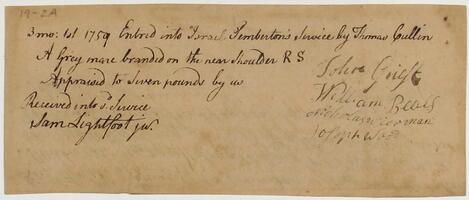 19-2A
3 mo: 1st 1759 Entred into Israel Pemberton's Service by Thomas Cullin
A Grey mare branded on the near Shoulder R S
Appraised to Seven pounds by us
Received into sd. Service
Sam Lightfoot jur.
John
William Beals
Nicholas Wierman
Joseph